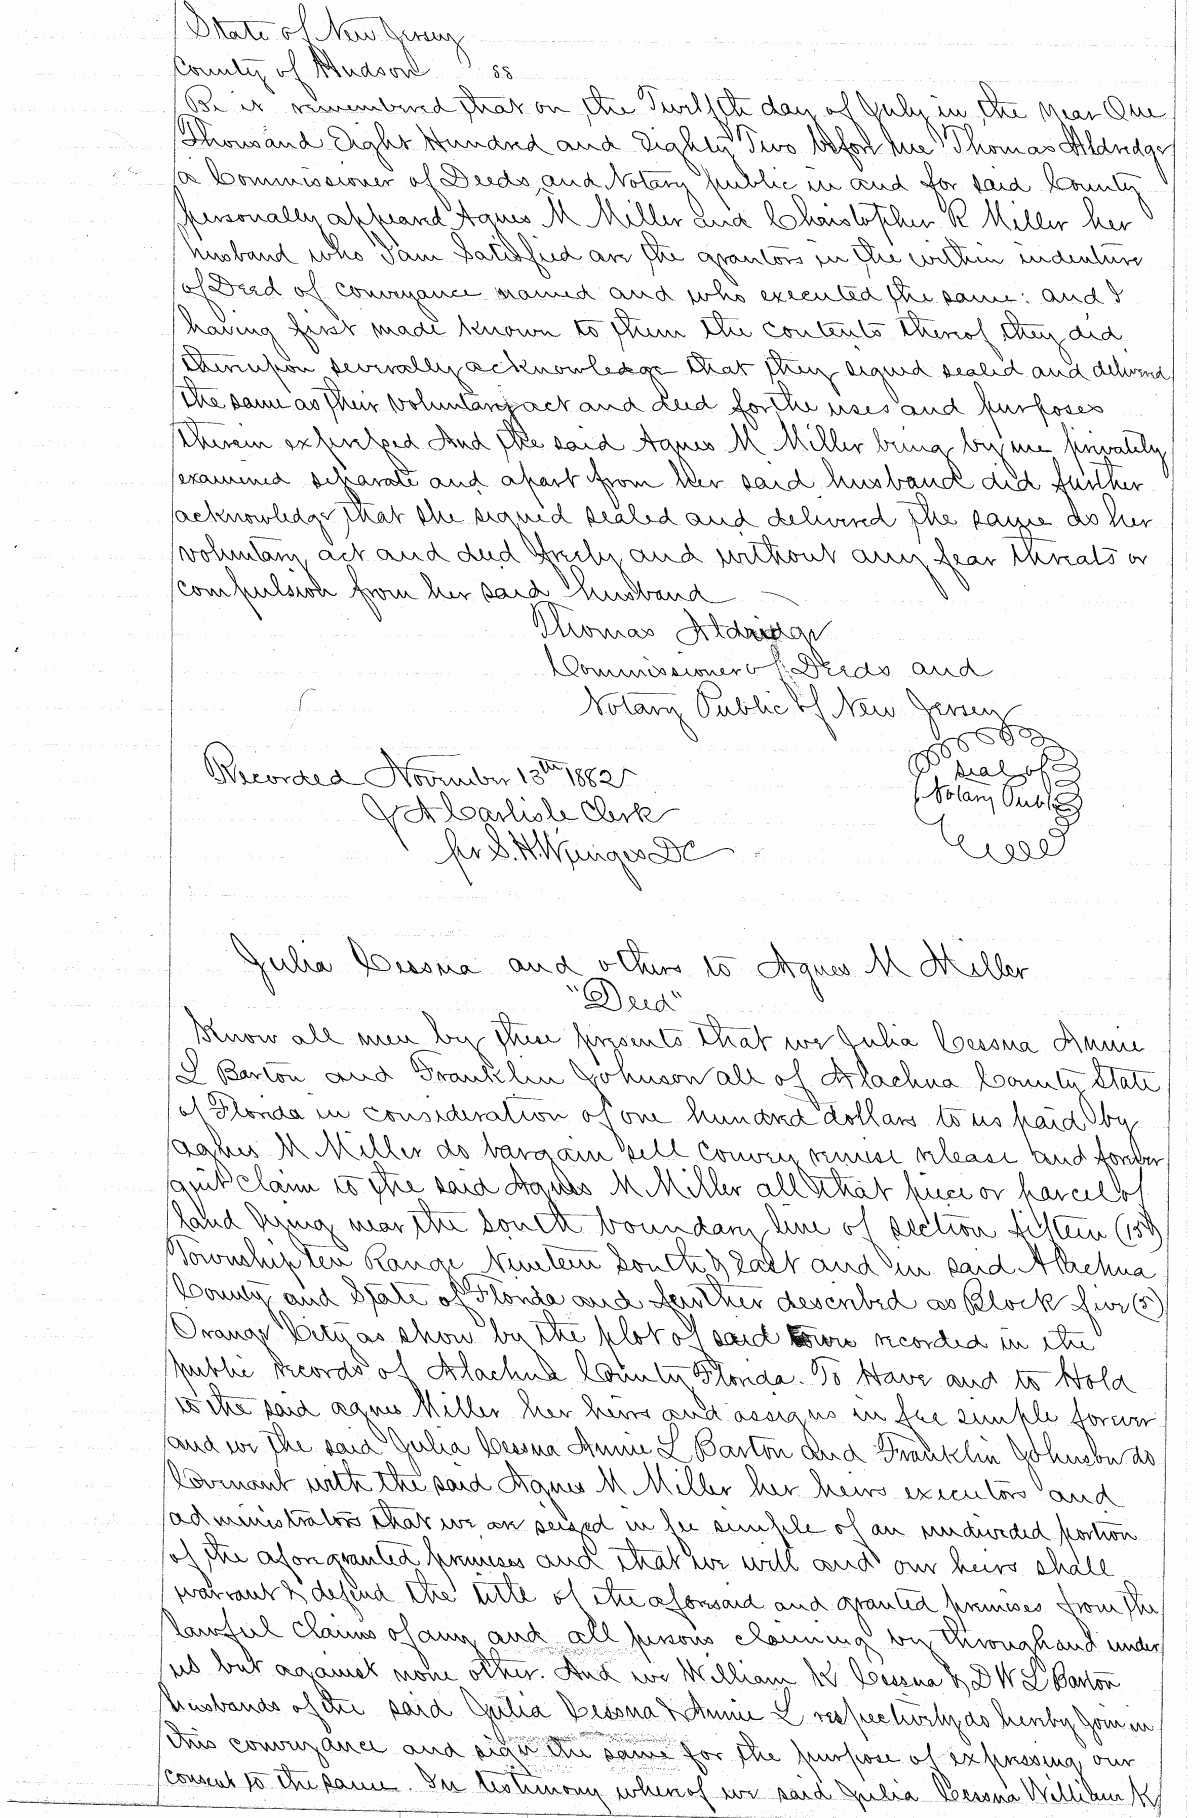 State of New Jersey
County of Hudson ss
Be it remembered that on the Twelfth day of July in the year One
Thousand Eight Hundred and Eighty Two before me Thomas Aldredge
a Commissioner of Deeds and Notary public in and for said County
personally appeared Agnes M Miller and Christopher R Miller her
husband who I am Satisfied are the grantors in the within indenture
of Deed of conveyance named and who executed the same: and I
having first made known to them the contents thereof they did
thereupon severally acknowledge that they signed sealed and delivered
the same as their voluntary act and deed for the uses and purposes
therein expressed And the said Agnes M Miller being by me privately
examined separate and apart from her said husband did further
acknowledge that she signed sealed and delivered the same as her
voluntary act and deed freely and without any fear threats or
compulsion from her said husband
Thomas Aldridge
Commissioner of Deeds and
Notary Public of New Jersey
Recorded November 13th 1882
J A Carlisle Clerk
per S. H. Wienges DC
Seal of
Notary Public
Julia Cessna and others to Agnes M Miller
"Deed"
Know all men by these presents that we Julia Cessna Annie
L Barton and Franklin Johnson all of Alachua County State
of Florida in consideration of one hundred dollars to us paid by
Agnes M Miller do bargain sell convey remise release and forever
quit claim to the said Agnes M Miller all that piece or parcel of
land lying near the South boundary line of section fifteen (15)
Township ten Range Nineteen South & East and in said Alachua
County and State of Florida and further described as Block five (5)
Orange City as show by the plot of said town recorded in the
public records of Alachua County Florida. To Have and to Hold
to the said agnes Miller her heirs and assigns in fee simple forever
and we the said Julia Cessna Annie L Barton and Franklin Johnson do
Covenant with the said Agnes M Miller her heirs executors and
administrators that we are seized in fee simple of an undivided portion
of the afore granted premises and that we will and our heirs shall
warrant & defend the title of the aforesaid and granted premises from the
lawful claims of any and all persons claiming by through and under
us but against none other. And we William K Cessna & D W L Barton
husbands of the said Julia Cessna & Annie L respectively do hereby join in
this conveyance and sign the same for the purpose of expressing our
consent to the same. In testimony whereof we said Julia Cessna William K